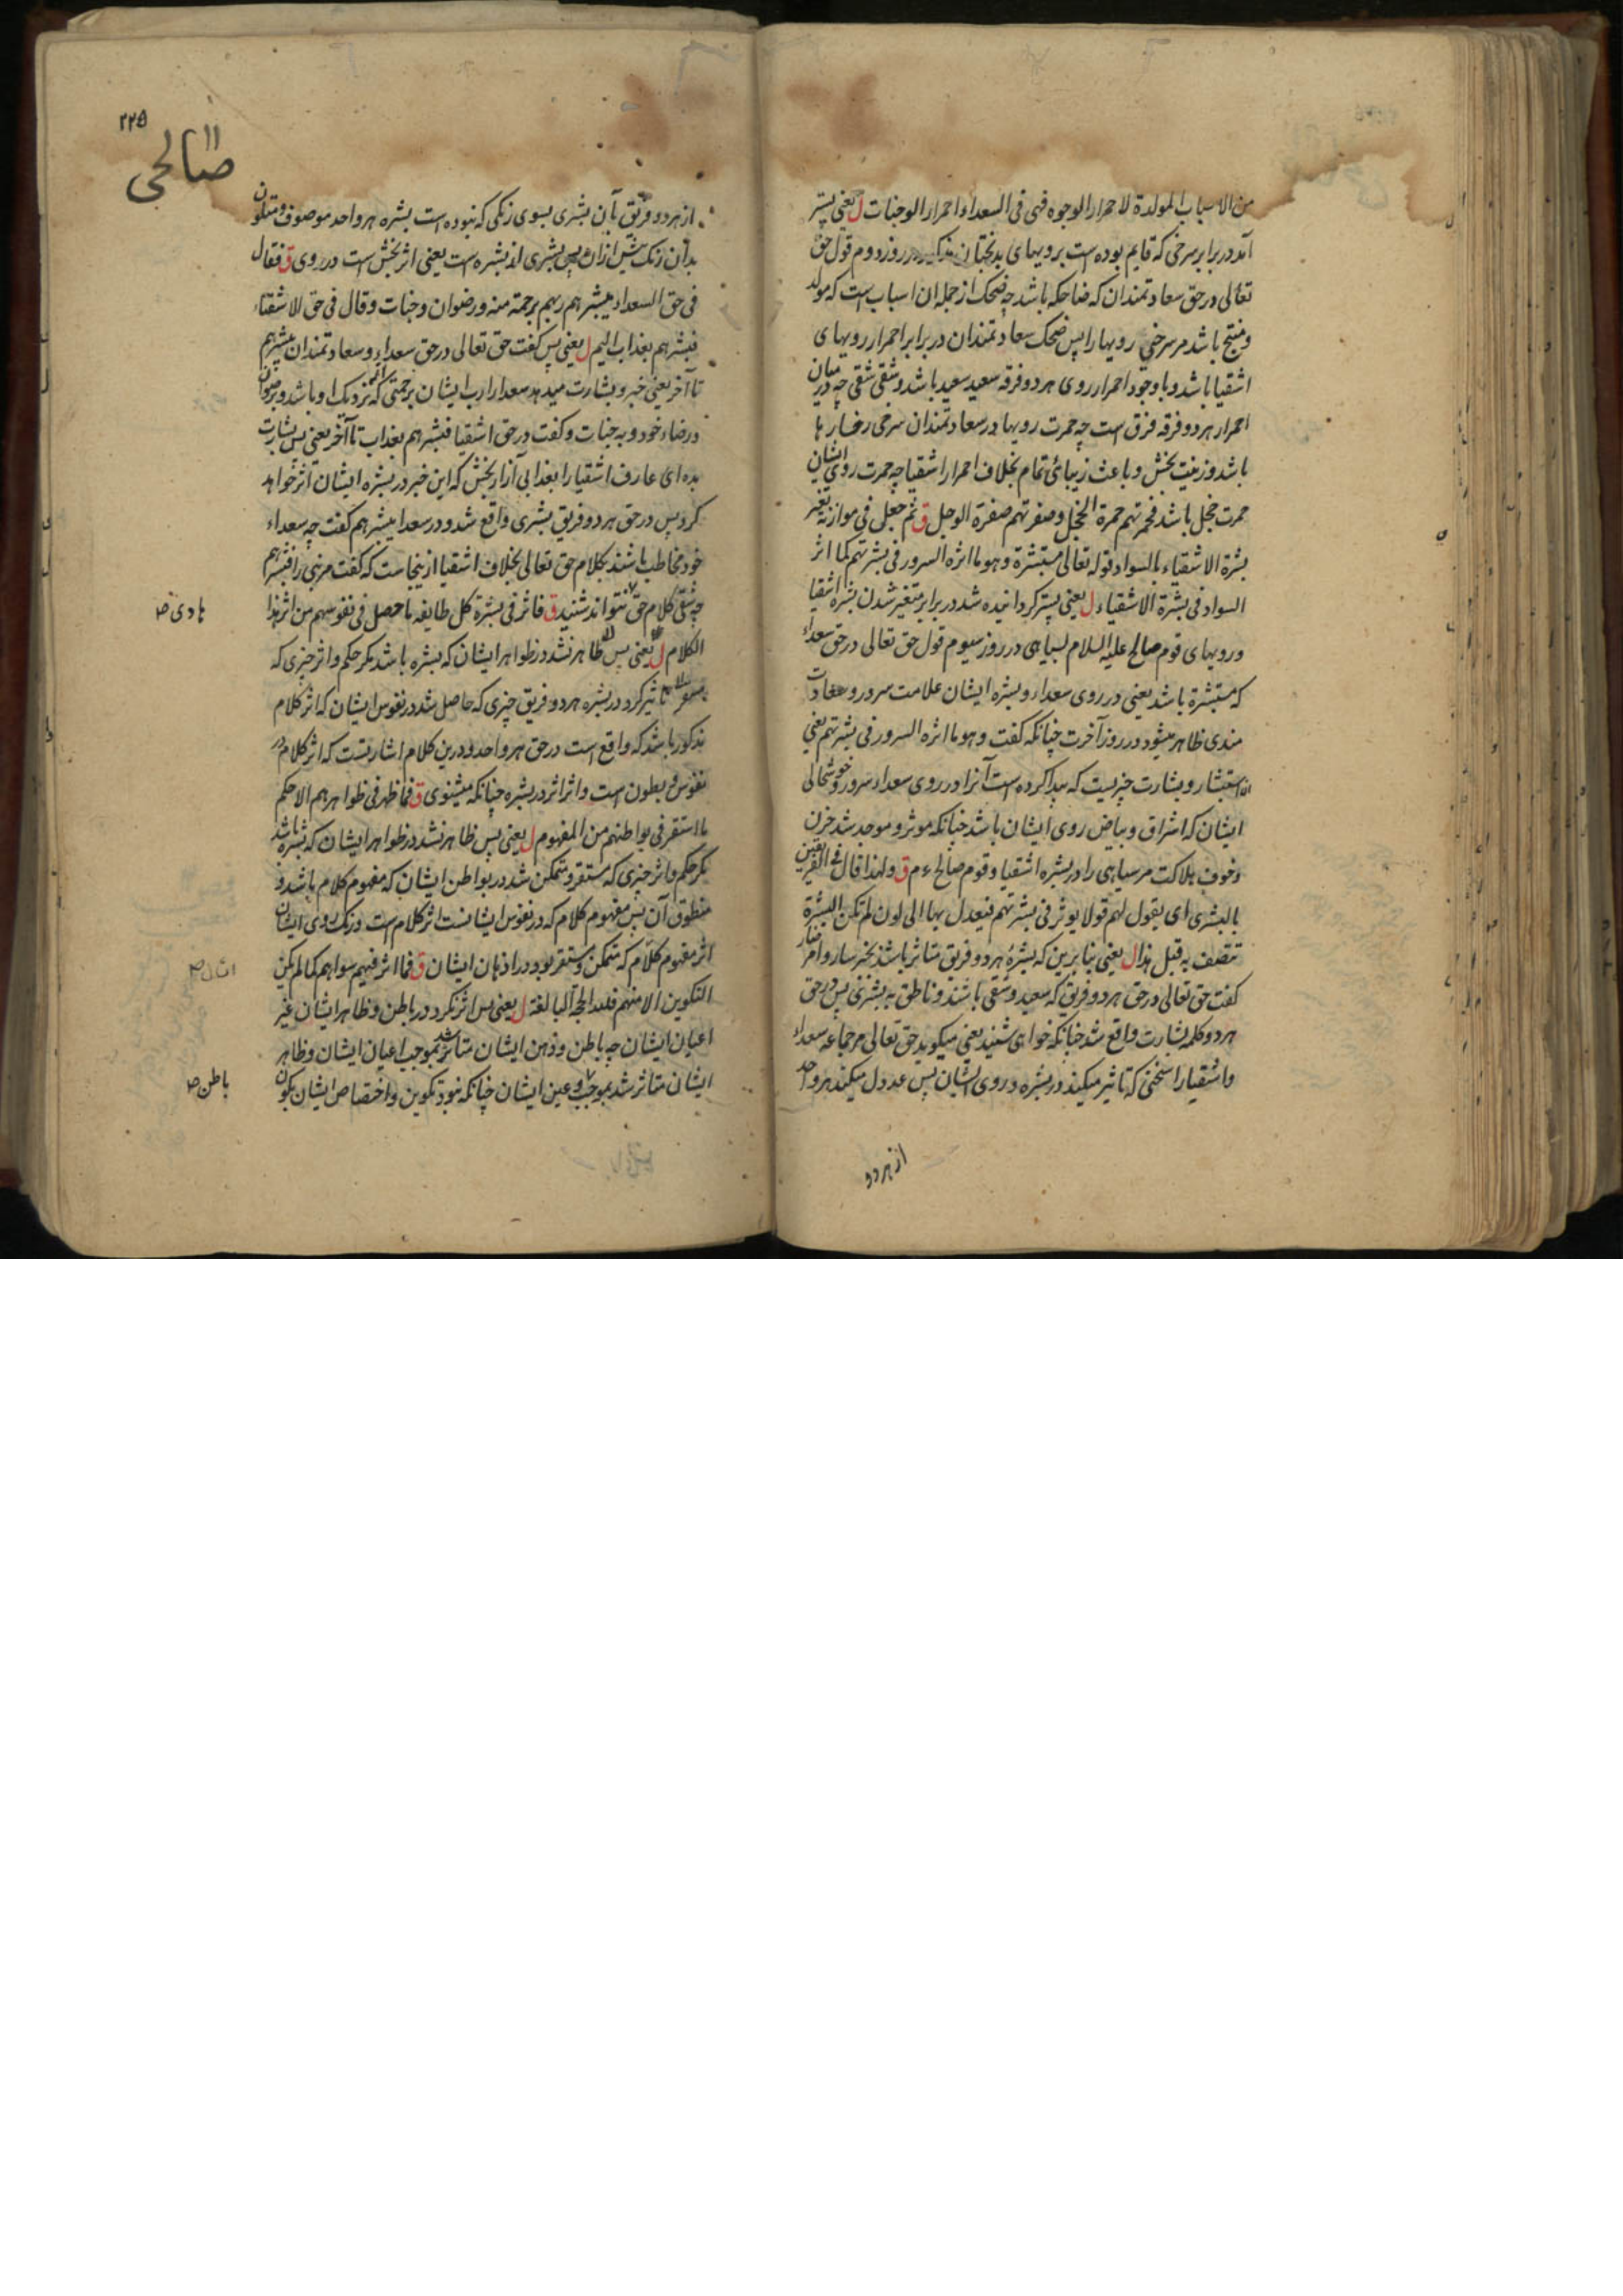 من الاسباب المولدة لاحمرار الوجوه فهی فی السعداء احمرار الوجنات ل یعنی پستر
آمد در برابر سرخی که قایم بوده است برویهای بدبختان مذکور در روز دوم قول حق
تعالی در حق سعادتمندان که ضاحکه باشد چه ضحک از جمله ان اسباب است که مولد
و منتج باشد مر سرخی رویها را پس ضحک سعادتمندان در برابر احمرار رویهای
اشقیا باشد و با وجود احمرار روی هر دو فرقه سعید سعید باشد و شقی شقی چه در میان
احمرار هر دو فرقه فرق است چه حمرت رویها در سعادتمندان سرخی رخسارها
باشد و زینت بخش و باعث زیبائی تمام بخلاف احمرار اشقیا چه حمرت روی ایشان
حمرت خجل باشد فحمرتهم حمرة الخجل و صفرتهم صفرة الوجل ق ثم جعل فی موازنة تغیر
بشرة الاشقیاء بالسواد قوله تعالی مستبشرة و هو ما اثره السرور فی بشرتهم کما اثر
السواد فی بشرة الاشقیاء ل یعنی پستر گردانیده شد در برابر متغیر شدن بشره اشقیا
و رویهای قوم صالح علیه السلام بسیاهی در روز سیوم قول حق تعالی در حق سعداء
که مستبشرة باشد یعنی در روی سعدا و بشره ایشان علامت سرور و سعادت
مندی ظاهر میشود در روز آخرت چنانکه گفت و هو ما اثره السرور فی بشرتهم یعنی
استبشار و بشارت چیزیست که پیدا کرده است آنرا در روی سعداء سرور و خوشحالی
ایشان که اشراق و بیاض روی ایشان باشد چنانکه موثر و موجد شد حزن
و خوف هلاکت مر سیاهی را در بشره اشقیا و قوم صالح ءم ق و لهذا قال فی الفریقین
بالبشری ای یقول لهم قولا یوثر فی بشرتهم فیعدل بها الی لون لم تکن البشرة
تتصف به قبل هذا ل یعنی بنا برین که بشرهٔ هر دو فریق متاثر باشد بخبر سار و اخبار
گفت حق تعالی در حق هر دو فریق که سعید و شقی باشند و ناطق به بشری پس در حق
هر دو کلمه بشارت واقع شد چنانکه خواهی شنید یعنی میگوید حق تعالی مر جماعه سعداء
و اشقیا را سخنی که تاثیر میکند در بشره و روی ایشان پس عدول میکند هر واحد
از هر دو
٢٢٥
صالحی
از هر دو فریق بآن بشری بسوی رنگی که نبوده است بشره هر واحد موصوف و متلون
بدان رنگ پیش ازان پس بشری از بشره است یعنی اثر بخش است در روی ق فقال
فی حق السعداء یبشرهم ربهم برحمة منه و رضوان و جنات و قال فی حق الاشقیاء
فبشرهم بعذاب الیم ل یعنی پس گفت حق تعالی در حق سعداء و سعادتمندان یبشرهم
تا آخر یعنی خبر و بشارت میدهد سعدا را رب ایشان برحمتی که نزدیک او باشد و برضوان
و رضاء خود و به جنات و گفت در حق اشقیا فبشرهم بعذاب تا آخر یعنی پس بشارت
بده ای عارف اشقیا را بعذابی آزار بخش که این خبر در بشره ایشان اثر خواهد
کرد پس در حق هر دو فریق بشری واقع شد و در سعدا یبشرهم گفت چه سعداء
خود مخاطب باشند بکلام حق تعالی بخلاف اشقیا ازینجاست که گفت مر نبی را فبشرهم
چه شقی کلام حق نتواند شنید ق فاثر فی بشرة کل طایفه ما حصل فی نفوسهم من اثر هذا
هادی صـ
الکلام ل یعنی پس ظاهر نشد در ظواهر ایشان که بشره باشد مگر حکم و اثر چیزی که
تاثیر کرد در بشره هر دو فریق چیزی که حاصل شد در نفوس ایشان که اثر کلام
مذکور باشد که واقع است در حق هر واحد و درین کلام اشارتست که اثر کلام در
نفوس و بطون است و اثر اثر در بشره چنانکه میشنوی ق فما ظهر فی ظواهرهم الا حکم
ما استقر فی بواطنهم من المفهوم ل یعنی پس ظاهر نشد در ظواهر ایشان که بشره باشد
مگر حکم و اثر چیزی که مستقر و متمکن شد در بواطن ایشان که مفهوم کلام باشد و
منطوق آن پس مفهوم کلام که در نفوس ایشانست اثر کلام است و رنگ روی ایشان
اثر مفهوم کلام که متمکن و مستقر بود در اذهان ایشان ق فما اثر فیهم سواهم کما لم یکن
التکوین الا منهم فلله الحجة البالغة ل یعنی پس اثر نکرد در باطن و ظاهر ایشان غیر
اعیان ایشان چه باطن و ذهن ایشان متاثر شد بموجب اعیان ایشان و ظاهر
ایشان متاثر شد بموجب عین ایشان چنانکه نبود تکوین و اختصاص ایشان بکون
باطن صـ